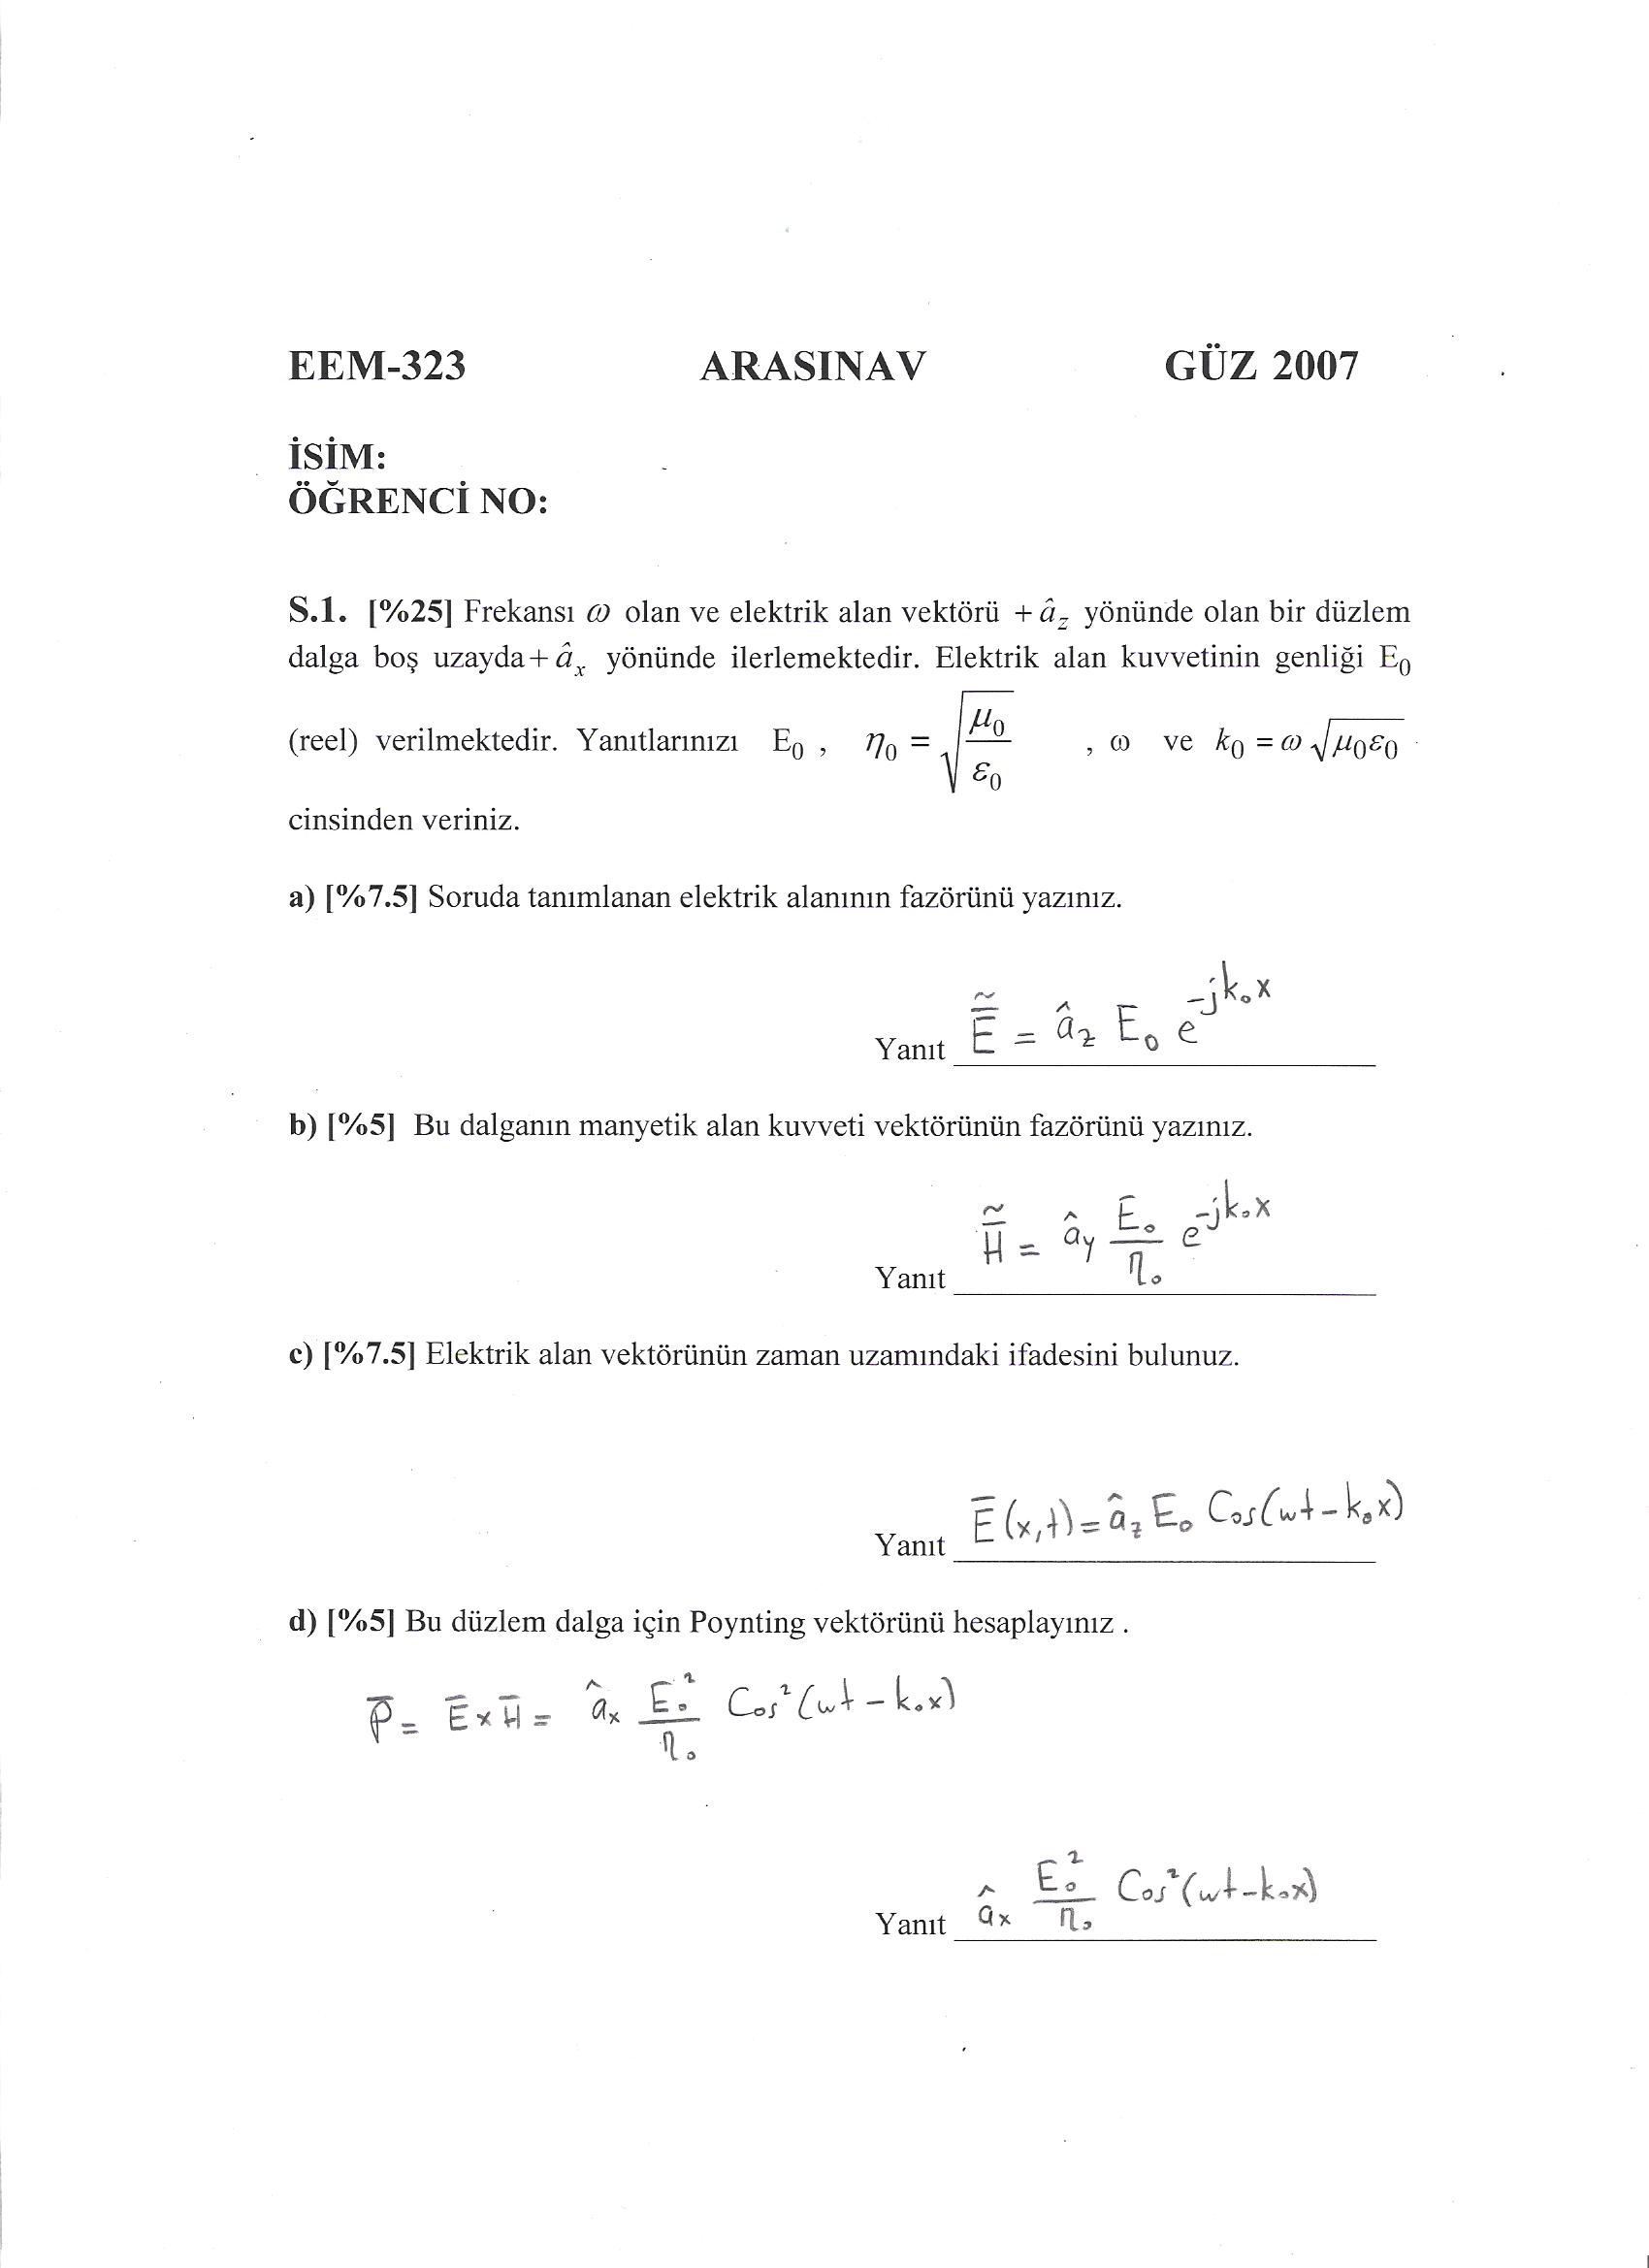 EEM-323 ARASINAV GÜZ 2007
İSİM:
ÖĞRENCİ NO:
S.1. [%25] Frekansı ω olan ve elektrik alan vektörü + â_z yönünde olan bir düzlem
dalga boş uzayda+ â_x yönünde ilerlemektedir. Elektrik alan kuvvetinin genliği E₀
(reel) verilmektedir. Yanıtlarınızı E₀ , η₀ = √(μ₀/ε₀) , ω ve k₀ = ω √(μ₀ε₀)
cinsinden veriniz.
a) [%7.5] Soruda tanımlanan elektrik alanının fazörünü yazınız.
Yanıt Ẽ = â_z E₀ e^(-jk₀x)
b) [%5] Bu dalganın manyetik alan kuvveti vektörünün fazörünü yazınız.
Yanıt H̃ = â_y E₀/η₀ e^(-jk₀x)
c) [%7.5] Elektrik alan vektörünün zaman uzamındaki ifadesini bulunuz.
Yanıt Ē(x,t) = â_z E₀ Cos(wt - k₀x)
d) [%5] Bu düzlem dalga için Poynting vektörünü hesaplayınız .
P̄ = Ē x H̄ = â_x E₀²/η₀ Cos²(wt - k₀x)
Yanıt â_x E₀²/η₀ Cos²(wt-k₀x)